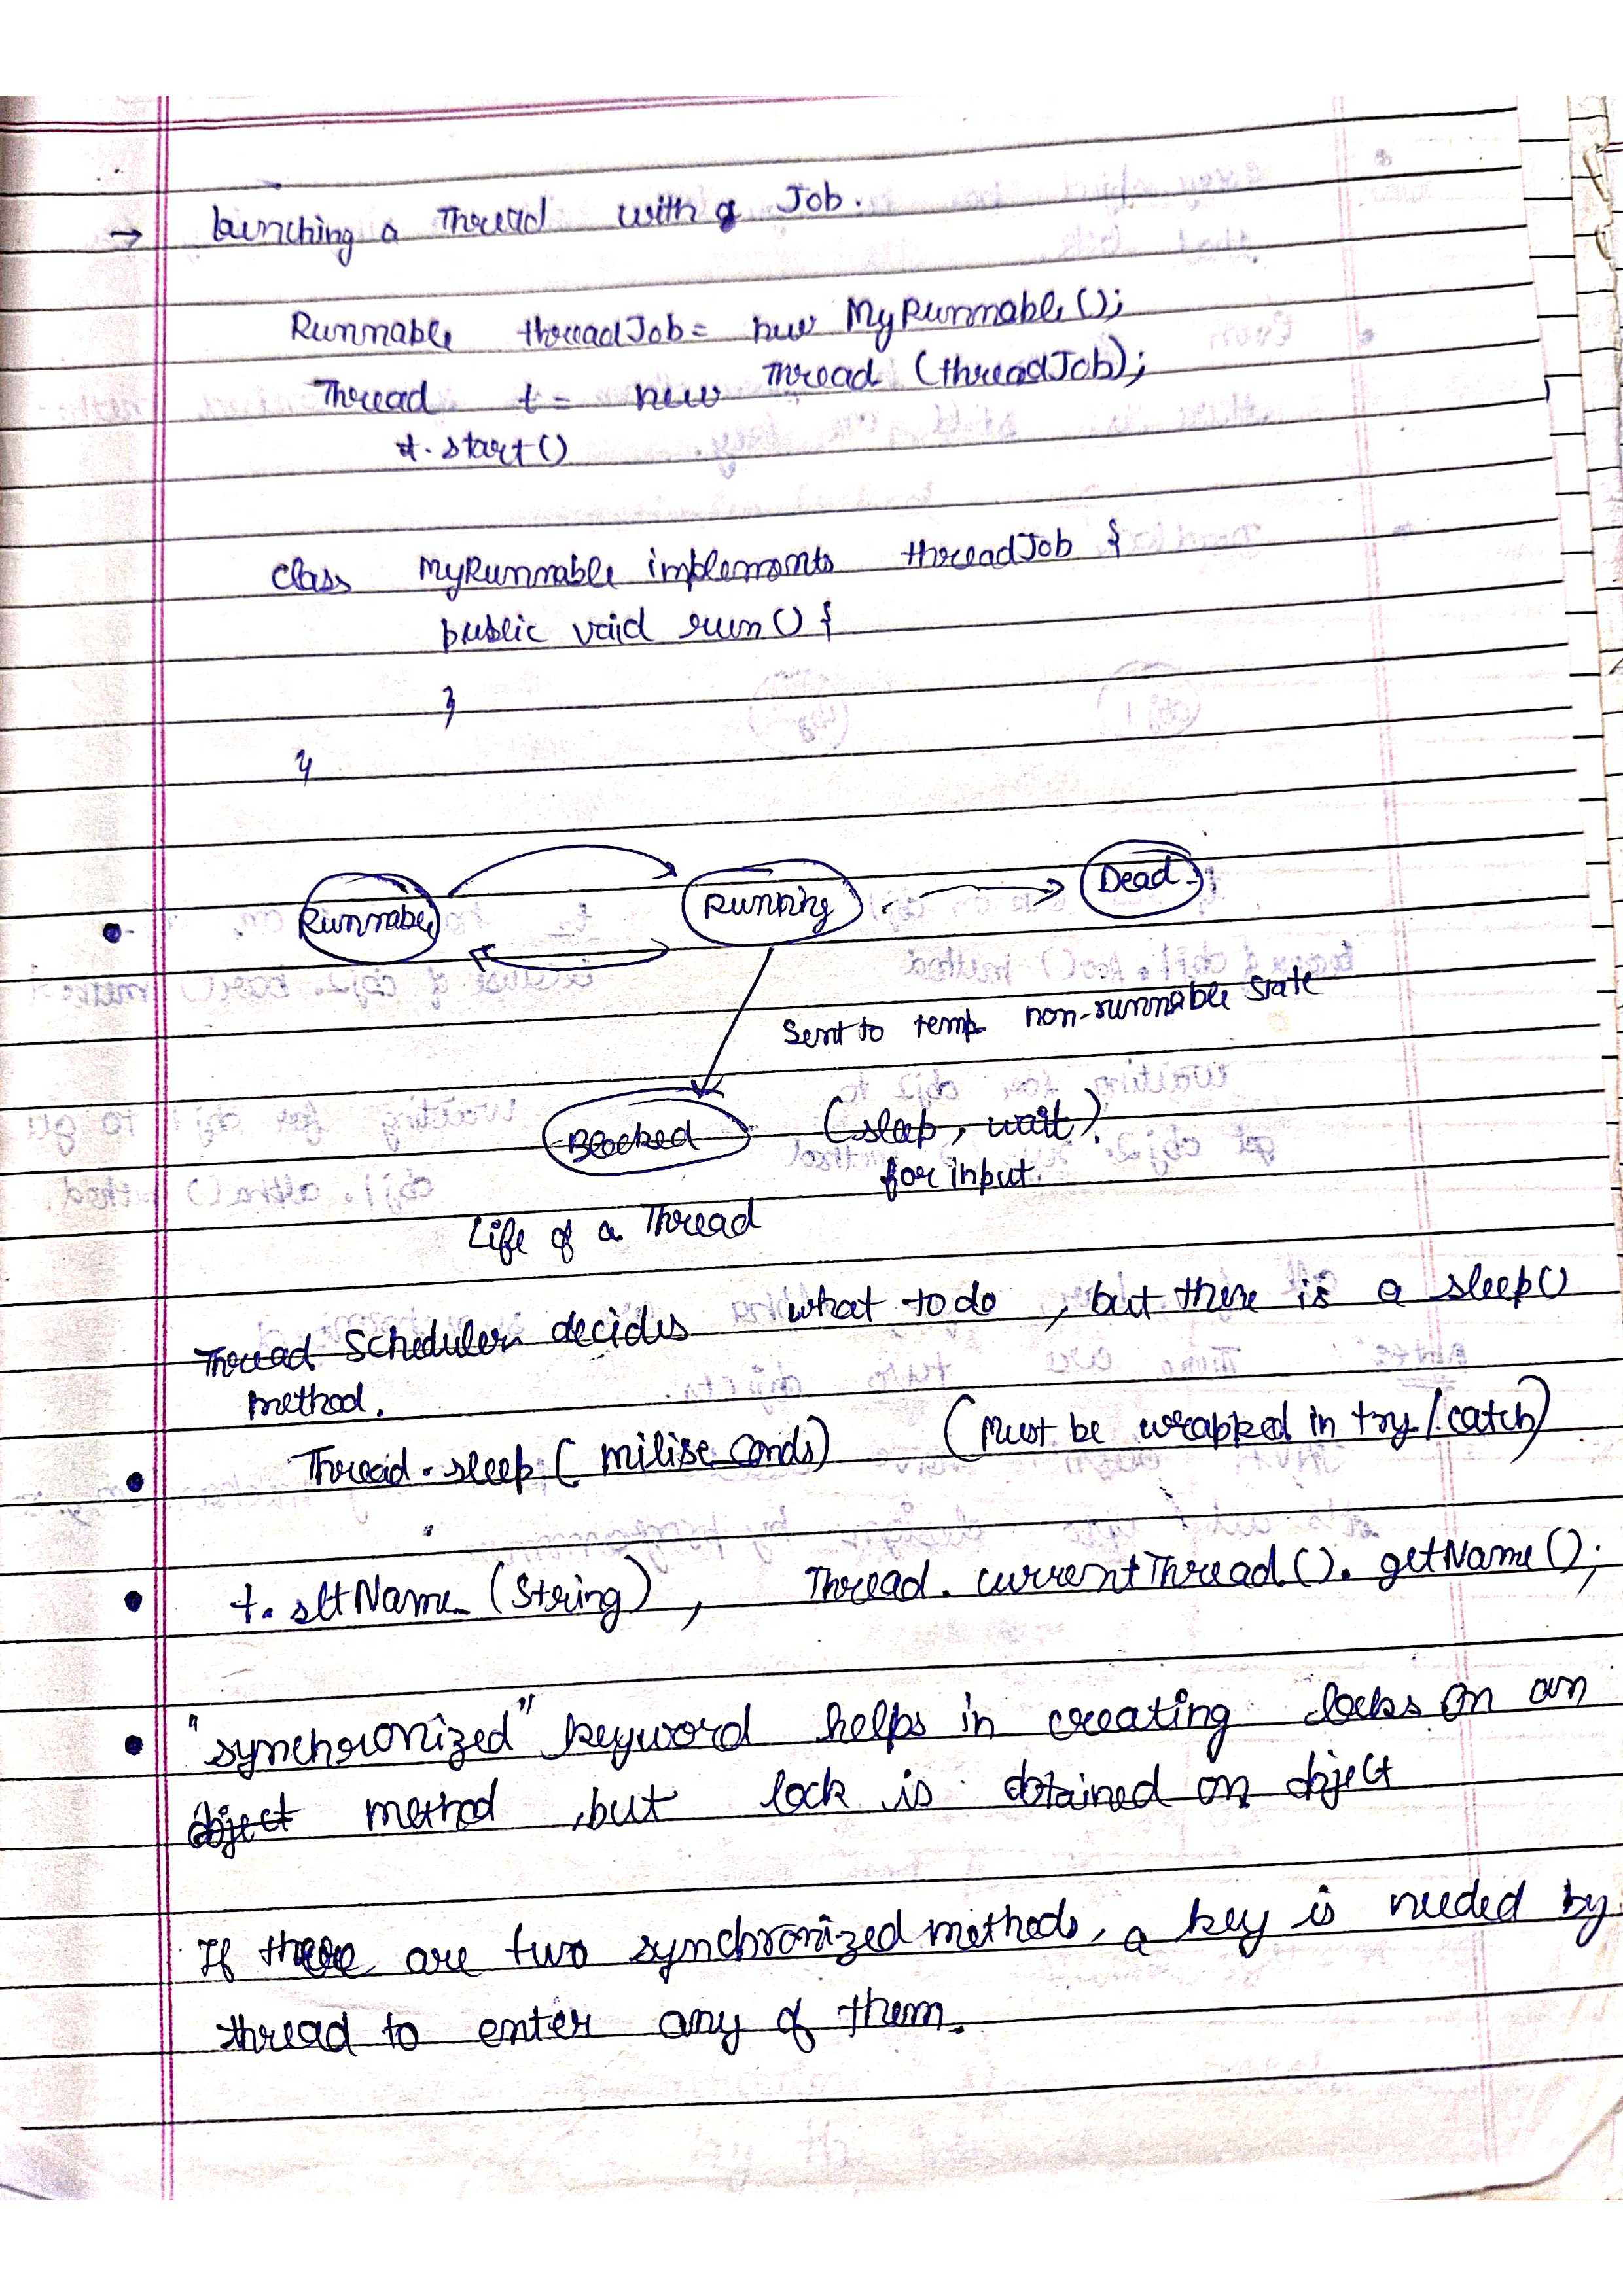 → Lunching a Thread with a Job.
Runnable threadJob = new MyRunnable();
Thread t = new Thread (threadJob);
t. start()
class MyRunnable implements threadJob {
public void run() {
}
}
Runnable Running Dead.
Sent to temp non-runnable state
Blocked (sleep, wait).
for input.
Life of a Thread
Thread Scheduler decides what to do, but there is a sleep()
method.
• Thread. sleep( miliseconds) (Must be wrapped in try/catch)
• t. setName (String), Thread. currentThread(). getName();
• "synchronized" keyword helps in creating locks on an
object method, but lock is obtained on object
If there are two synchronized methods, a key is needed by
thread to enter any of them.